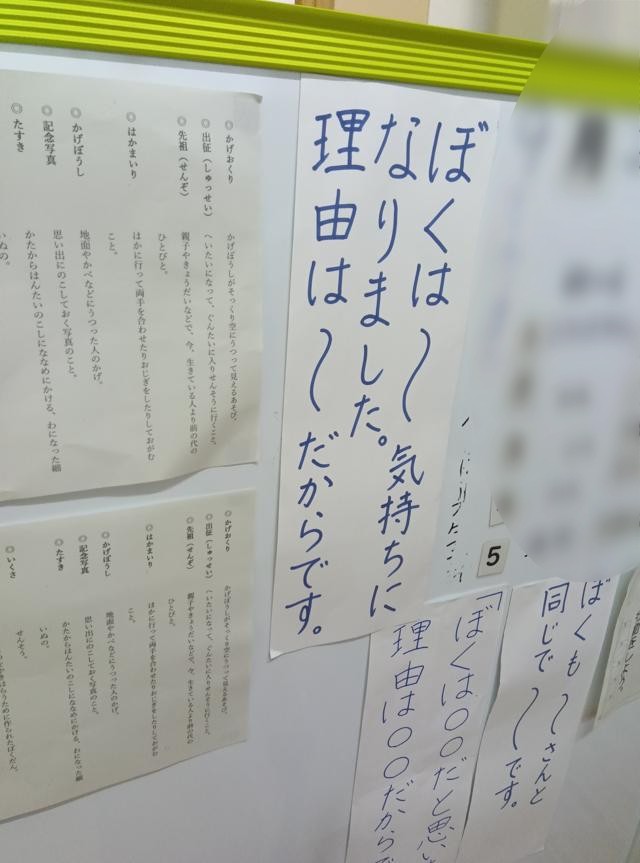 ぼくは〜気持ちに
なりました。
理由は〜だからです。
◎かげおくり
かげぼうしがそっくり空にうつって見えるあそび。
◎出征（しゅっせい）
へいたいになって、ぐんたいに入りせんそうに行くこと。
◎先祖（せんぞ）
親子やきょうだいなどで、今、生きている人より前の代の
ひとびと。
◎はかまいり
はかに行って両手を合わせたりおじぎをしたりしておがむ
こと。
◎かげぼうし
地面やかべなどにうつった人のかげ。
◎記念写真
思い出にのこしておく写真のこと。
◎たすき
かたからはんたいのこしにななめにかける、わになった細
いぬの。
◎かげおくり
かげぼうしがそっくり空にうつって見えるあそび。
◎出征（しゅっせい）
へいたいになって、ぐんたいに入りせんそうに行くこと。
◎先祖（せんぞ）
親子やきょうだいなどで、今、生きている人より前の代の
ひとびと。
◎はかまいり
はかに行って両手を合わせたりおじぎをしたりしておがむ
こと。
◎かげぼうし
地面やかべなどにうつった人のかげ。
◎記念写真
思い出にのこしておく写真のこと。
◎たすき
かたからはんたいのこしにななめにかける、わになった細
いぬの。
◎いくさ
せんそう。
5
ぼくも〜さんと
同じで〜です。
「ぼくは○○だと思い
理由は○○だからで